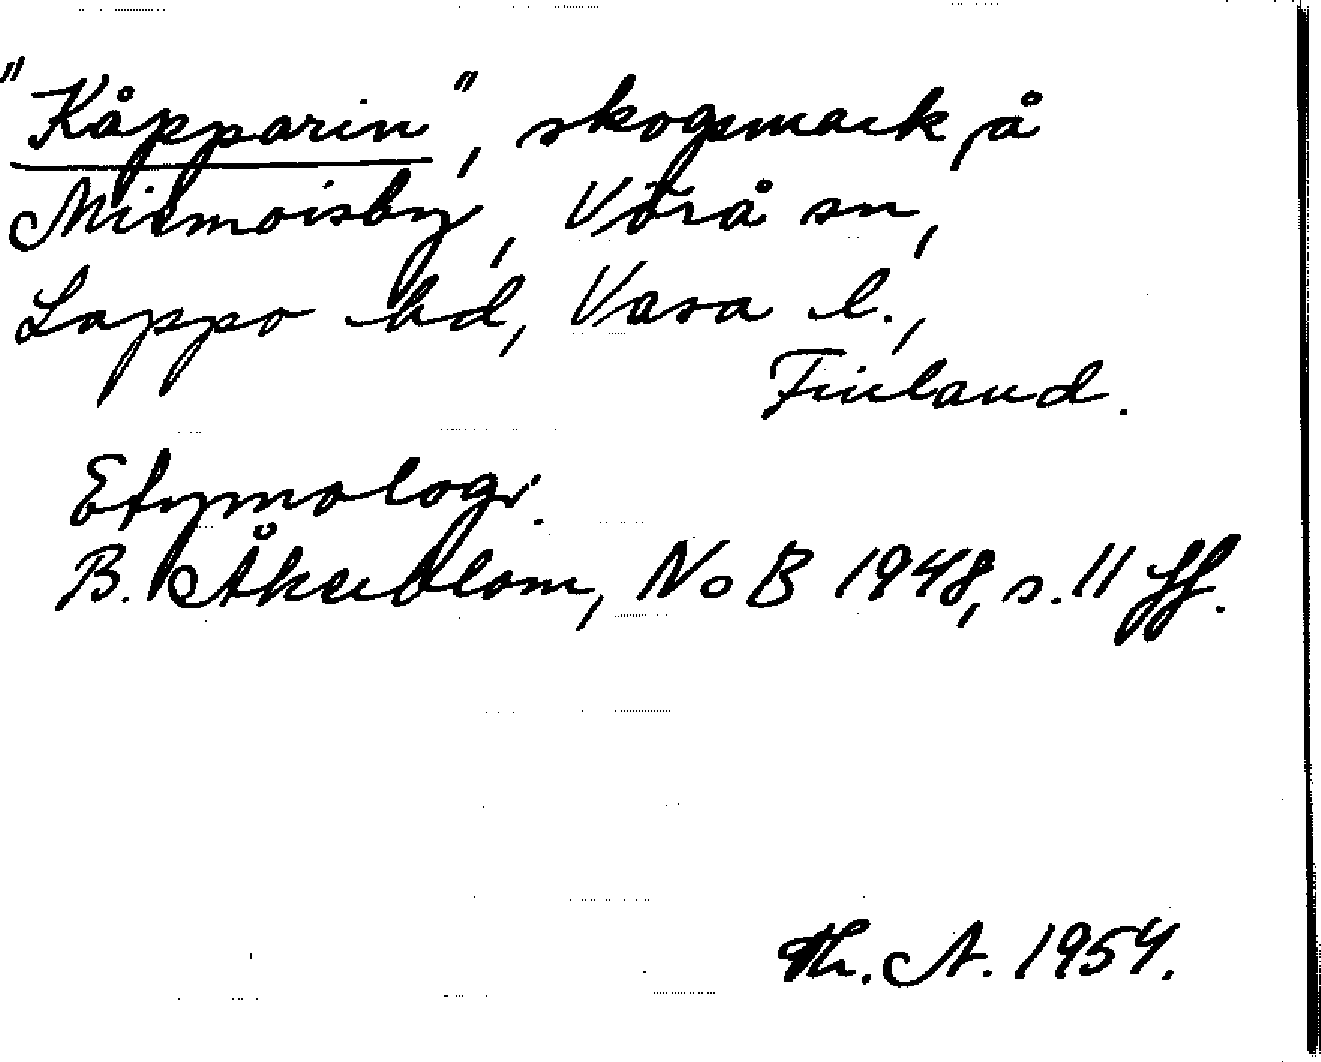 "Kåpparin", skogsmark å
Miemoisby, Vörå sn,
Lappo hd, Vasa l.,
Finland.
Etymologi.
B. Åkerblom, NoB 1948, s. 11 ff.
Th. A. 1954.